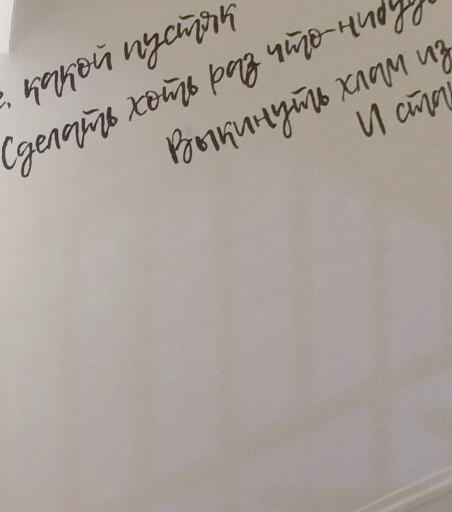 , какой пустяк
Сделать хоть раз что-нибудь
Выкинуть хлам из
И ста